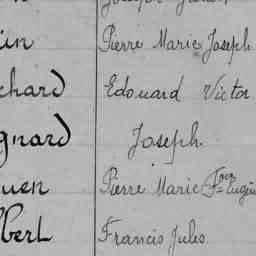 in Pierre Marie Joseph
chard Edouard Victor
gnard Joseph
uen Pierre Marie Fçois Eugèn
bert Francis Jules.